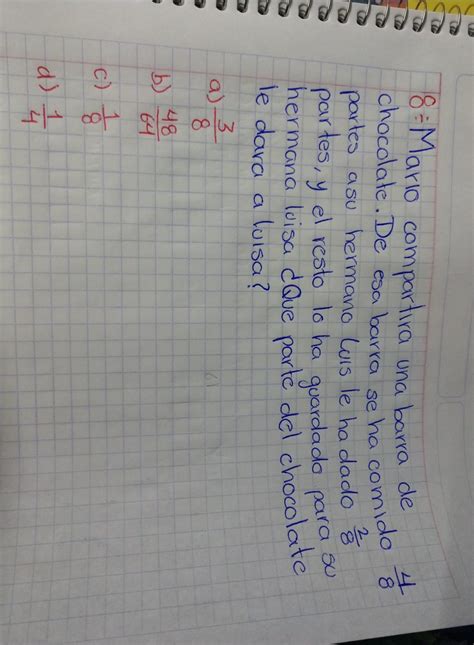 8= Mario compartira una barra de
chocolate. De esa barra se ha comido 4/8
partes asu hermano Luis le ha dado 2/8
partes, y el resto lo ha guardado para su
hermana luisa ¿Que parte del chocolate
le dara a luisa?
a) 3/8
b) 48/64
c) 1/8
d) 1/4